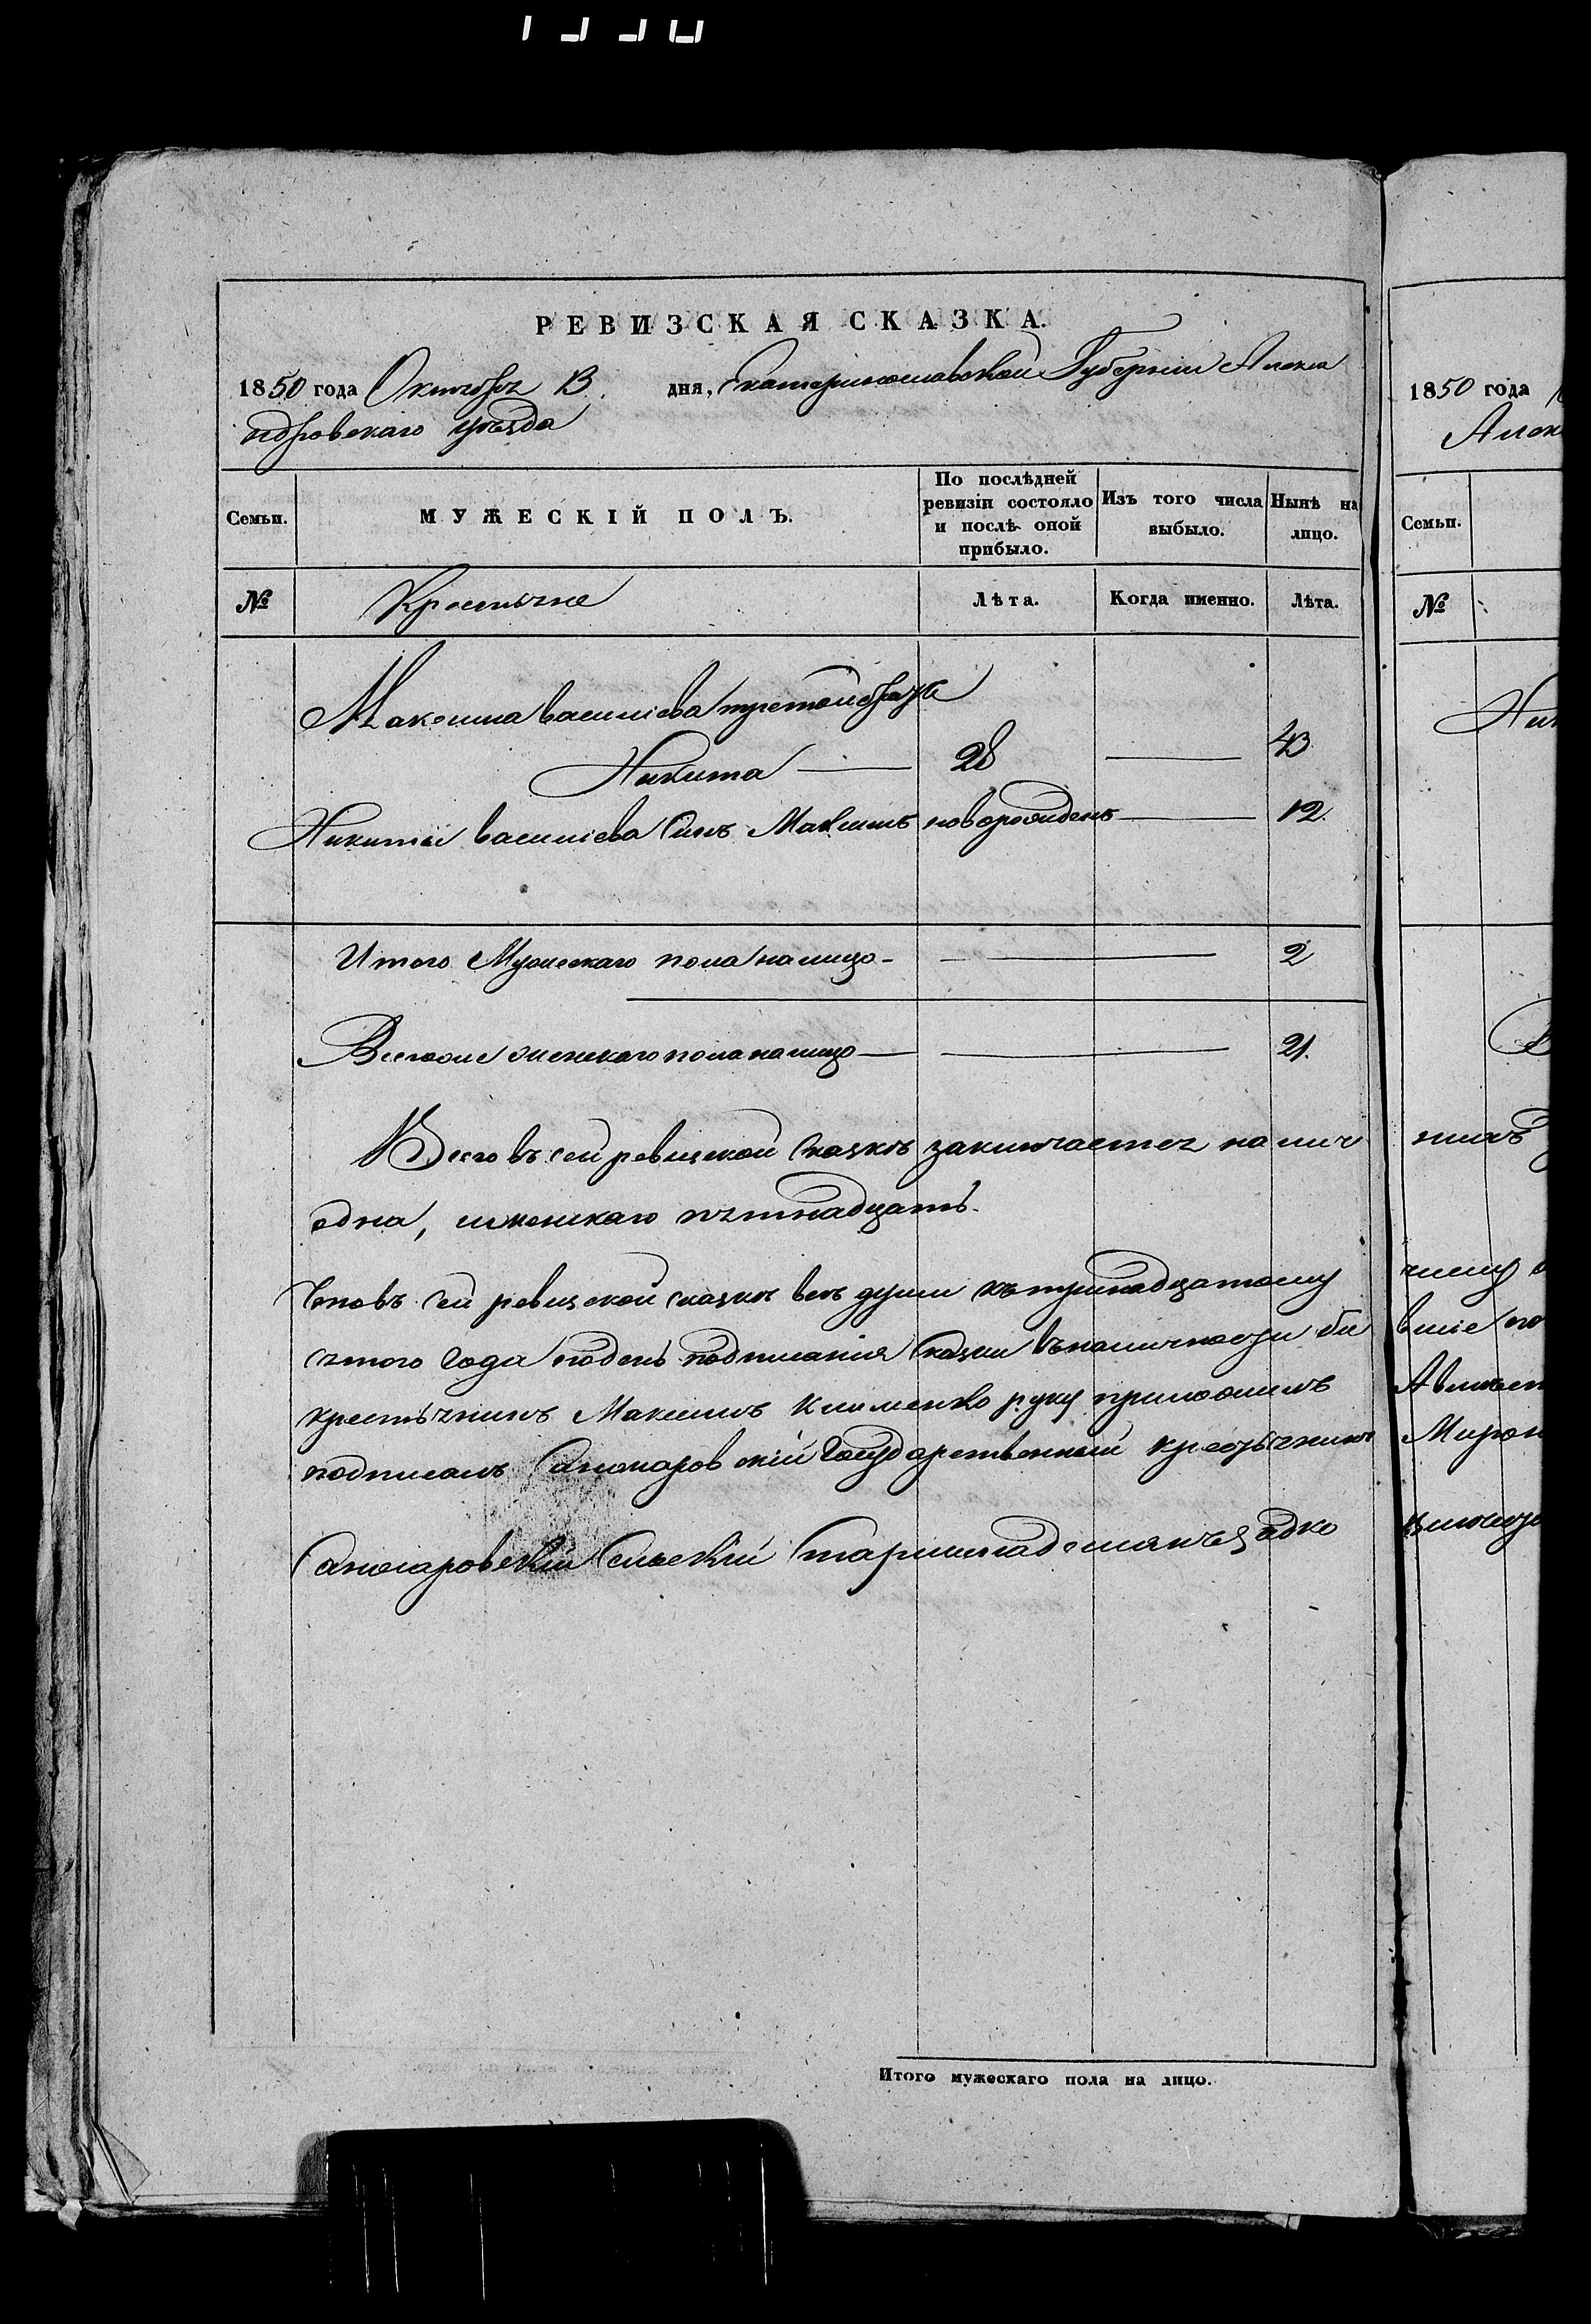 РЕВИЗСКАЯ СКАЗКА.
1850 года Октября 13. дня, Екатеринославской Губернии Алекса
ндровскаго уѣзда
Семьи.
МУЖЕСКІЙ ПОЛЪ.
По послѣдней ревизіи состояло и послѣ оной прибыло.
Изъ того числа выбыло.
Нынѣ на лицо.
№ Крестьяне Лѣта. Когда именно. Лѣта.
Максима Василіева третой братъ
Никита — 28 — 43
Никиты Василіева Сынъ Максимъ новорожденъ — 12.
Итого Мужескаго пола налицо — — 2
Всегоже женскаго пола налицо — — 21.
Всего въ сей ревизской Сказкѣ заключается налич
одна, иженскаго пятнадцать.
Чтовъ Сей ревизской сказкѣ всѣ души къ тринадцатому
этого года подень подписанія Сказки въналичности бы
крестьянинъ Максимъ Клименко руку приложилъ
подписалъ Государственный крестьянинъ
Сельскій Старшина
Итого мужескаго пола на лицо.
1850 года
Алек
Семьи.
№
Ник
нихъ
числу
вшіе
Мирон